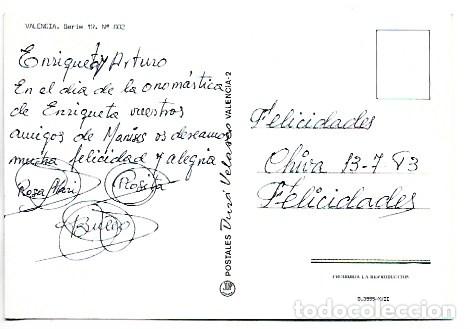 VALENCIA. Serie 19. Nº 802
Enriqueta y Arturo
En el dia de la onomástica
de Enriqueta vuestros
amigos de Manises os deseamos
mucha felicidad y alegria
Rosa Mari
Rosita
POSTALES Durá Velasco VALENCIA-2
Felicidades
Chiva 13-7 83
Felicidades
PROHIBIDA LA REPRODUCCION
todocoleccion.net